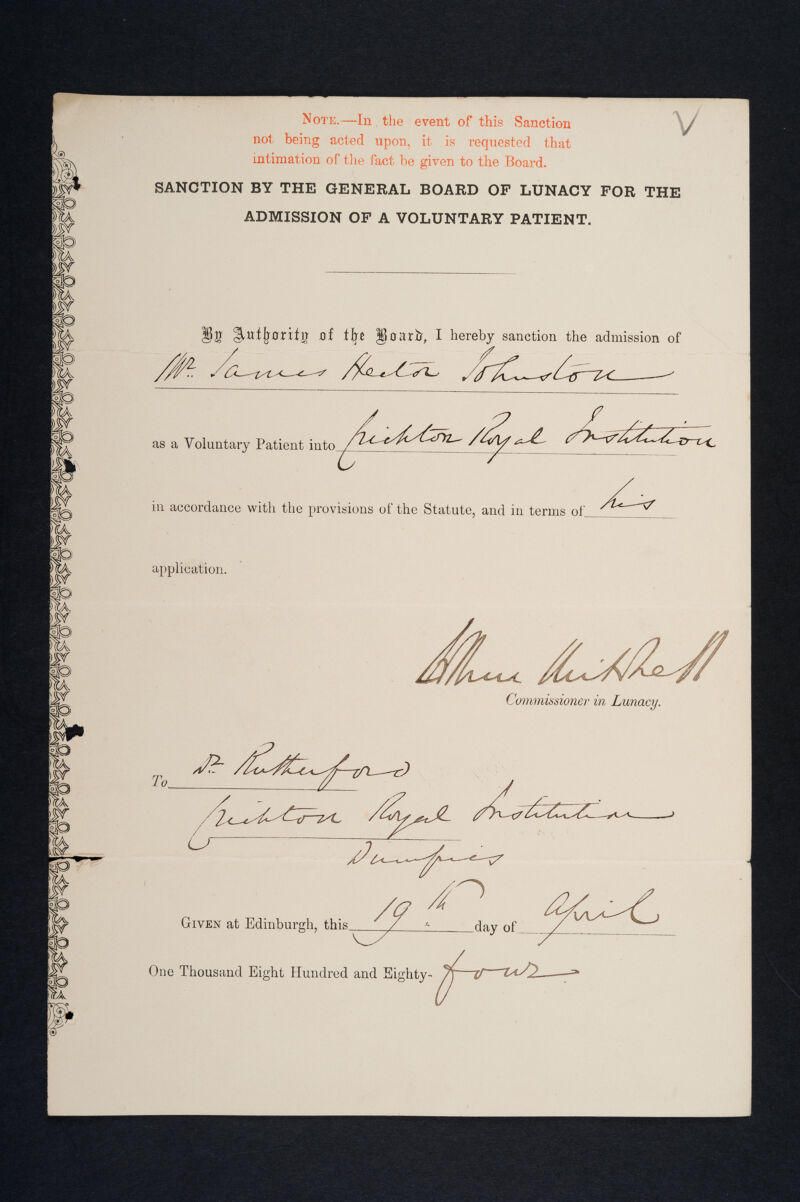 V
NOTE.—In the event of this Sanction
not being acted upon, it is requested that
intimation of the fact be given to the Board.
SANCTION BY THE GENERAL BOARD OF LUNACY FOR THE
ADMISSION OF A VOLUNTARY PATIENT.
By Authority of the Board, I hereby sanction the admission of
Mr. James Hector Johnston
as a Voluntary Patient into Crichton Royal Institution
in accordance with the provisions of the Statute, and in terms of his
application.
Arthur Mitchell
Commissioner in Lunacy.
To Dr. Rutherford
Crichton Royal Institution
Dumfries
GIVEN at Edinburgh, this 19th day of April
One Thousand Eight Hundred and Eighty-four